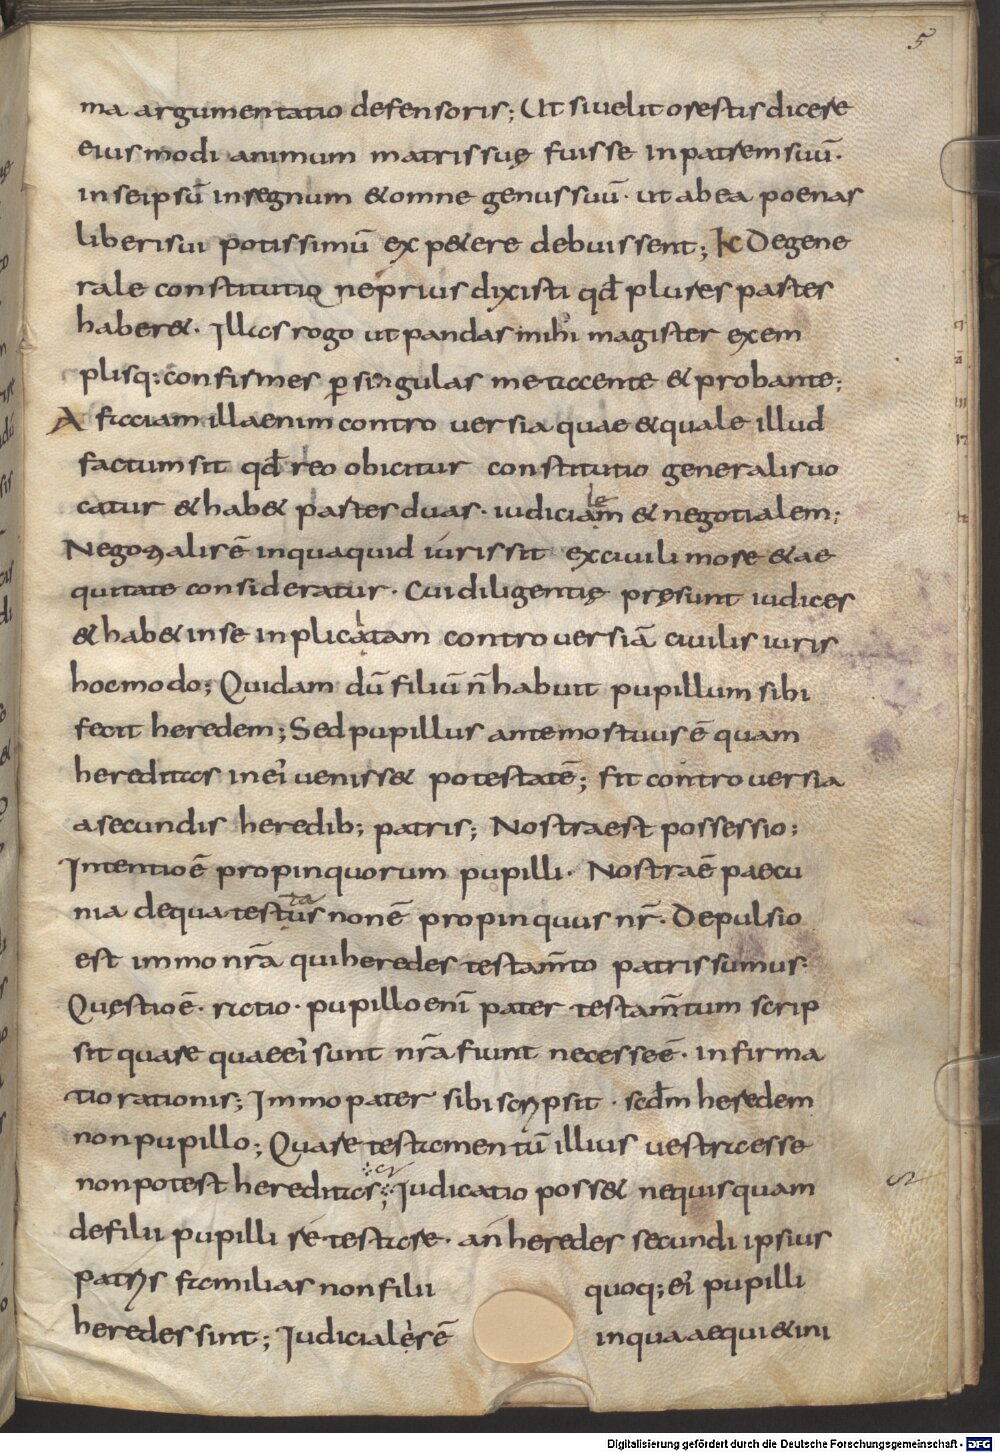 5
ma argumentatio defensoris; Ut si velit orestis dicere
eiusmodi animum matris suę fuisse in patrem suū·
in seipsū in regnum & omne genus suū· ut ab ea poenas
liberi sui potissimū ex p&ere debuissent; K De gene
rale constitutio neprius dixisti qđ plures partes
haber&· Illas rogo ut pandas mihi magister exem
plisq; confirmes p̲ singulas me tacente & probante;
A ficciam illa enim controversia quae & quale illud
factum sit qđ reo obicitur constitutio generalis vo
catur & hab& partes duas· iudicialem & negotialem;
Negotialis ē in qua quid iuris sit ex civili more & ae
quitate consideratur· Cui diligentię pręsunt iudices
& hab& in se inplicatam controversiā civilis iuris
hoc modo; Quidam dū filiū n̄ habuit pupillum sibi
fecit heredem; Sed pupillus ante mortuus ē quam
hereditas in ei venisset potestatē; fit controversia
a secundis heredib; patris; Nostra est possessio;
Intentio ē propinquorum pupilli· Nostra ē paecu
nia de qua testatus non ē propinquus nr̄· Depulsio
est immo nr̄a qui heredes testam̄to patris sumus·
Quęstio ē· ratio· pupillo enī pater testam̄tum scrip
sit quare quae ei sunt nr̄a fiunt necesse ē· infirma
tio rationis; Immo pater sibi scripsit· scđm heredem
non pupillo; Quare testamentū illius vestra esse
non potest hereditas; Iudicatio poss& nequisquam
de filii pupilli re testare· an heredes secundi ipsius
patris familias non filii quoq; ei pupilli
heredes sint; Iudicialis ē in qua aequi & ini
Digitalisierung gefördert durch die Deutsche Forschungsgemeinschaft - DFG